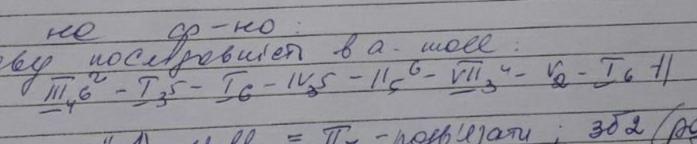 на ф-но:
ву послідовність в a-moll:
III₄⁶² - I₃⁵ - I₆ - IV₃⁵ - II₅⁶ - VII₃⁴ - V₂ - I₆ ||
= II₇ - розв'язати; зб2